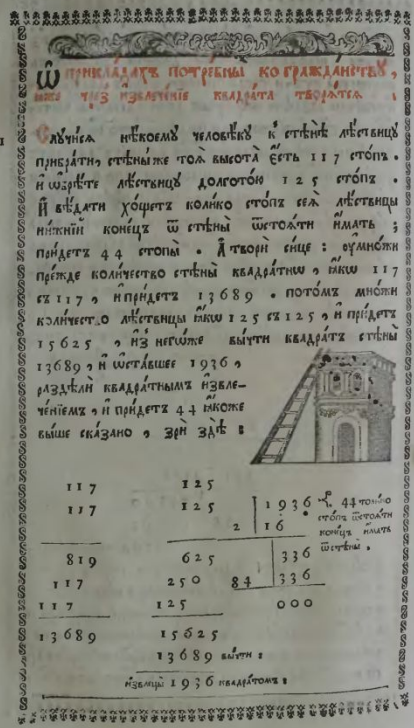 Ѿ прикла́дахъ потре́бныхъ ко гражда́нству,
ꙗ҆̀же чрез̾ и҆звлече́нїе квадра́та творѧ́тсѧ .
Случи́сѧ нѣ́коему человѣ́ку к̾ стѣнѣ̀ лѣ́ствицу
прибра́ти, стѣны́ же тоѧ̀ высота̀ є҆́сть 117 стопъ .
и҆ ѡ҆брѣ́те лѣ́ствицу долгото́ю 125 стопъ .
И҆ вѣ́дати хо́щетъ коли́кѡ стопъ сеѧ̀ лѣ́ствицы
ни́жнїй коне́цъ ѿ стѣны̀ ѿстоѧ́ти и҆́мать ;
прїи́детъ 44 стопы̀ . А҆ творѝ си́це : ᲂу҆мно́жи
пре́жде коли́чество стѣны̀ квадра́тнѡ , ꙗ҆́кѡ 117
съ 117 , и҆ прїи́детъ 13689 . пото́мъ мно́жи
коли́чество лѣ́ствицы ꙗ҆́кѡ 125 съ 125 , и҆ прїи́детъ
15625 , и҆з̾ негѡ́же вы́чти квадра́тъ стѣны̀
13689 , и҆ ѡ҆ста́вшее 1936 ,
раздѣлѝ квадра́тнымъ и҆звле-
че́нїемъ , и҆ прїи́детъ 44 ꙗ҆́коже
вы́ше ска́зано , зрѝ здѣ̀ :
117 125
117 125 1936 44 то́ликѡ
2 16 стопъ ѿстоѧ́ти
коне́цъ и҆́мать
819 625 336 ѿ стѣны̀ .
117 250 84 336
117 125 000
13689 15625
13689 вы́чти :
и҆звлецы̀ 1936 квадра́томъ :